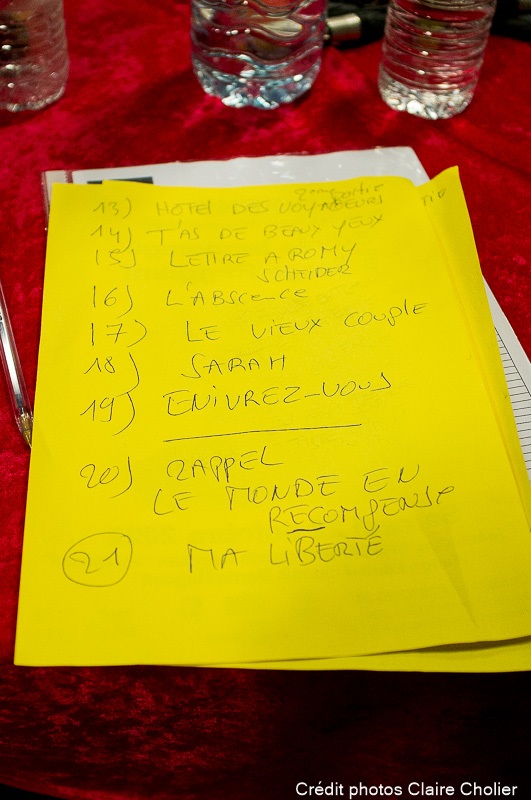 2ème partie
13) HOTEL DES VOYAGEURS
14) T'AS DE BEAUX YEUX
15) LETTRE A ROMY
SCHEIDER
16) L'ABSCENCE
17) LE VIEUX COUPLE
18) SARAH
19) ENIVREZ-VOUS
20) RAPPEL
LE MONDE EN
RECOMPENSE
21 MA LIBERTÉ
Crédit photos Claire Cholier